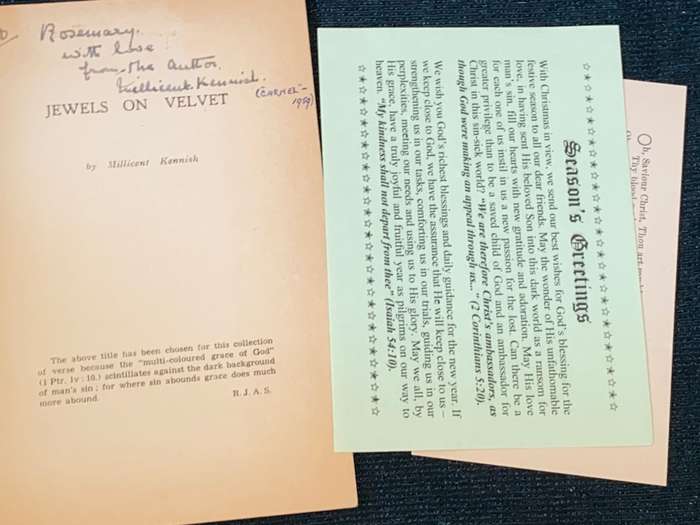 Rosemary.
with love
from the Author.
Millicent Kennish.
(CARMEL -
1979)
JEWELS ON VELVET
by Millicent Kennish
The above title has been chosen for this collection
of verse because the "multi-coloured grace of God"
(1 Ptr. iv : 10.) scintillates against the dark background
of man's sin ; for where sin abounds grace does much
more abound.
R. J. A. S.
Season's Greetings
With Christmas in view, we send our best wishes for God's blessing for the
festive season to all our dear friends. May the wonder of His unfathomable
love, in having sent His beloved Son into this dark world as a ransom for
man's sin, fill our hearts with new gratitude and adoration. May His love
for each one of us instil in us a new passion for the lost. Can there be a
greater privilege than to be a saved child of God and an ambassador for
Christ in this sin-sick world? "We are therefore Christ's ambassadors, as
though God were making an appeal through us... " (2 Corinthians 5:20).
We wish you God's richest blessings and daily guidance for the new year. If
we keep close to God, we have the assurance that He will keep close to us –
strengthening us in our tasks, comforting us in our trials, guiding us in our
perplexities, meeting our needs and using us to His glory. May we all, by
His grace, have a truly joyful and fruitful year as pilgrims on our way to
heaven. "My kindness shall not depart from thee" (Isaiah 54:10).
Oh, Saviour Christ, Thou art
Thy blood